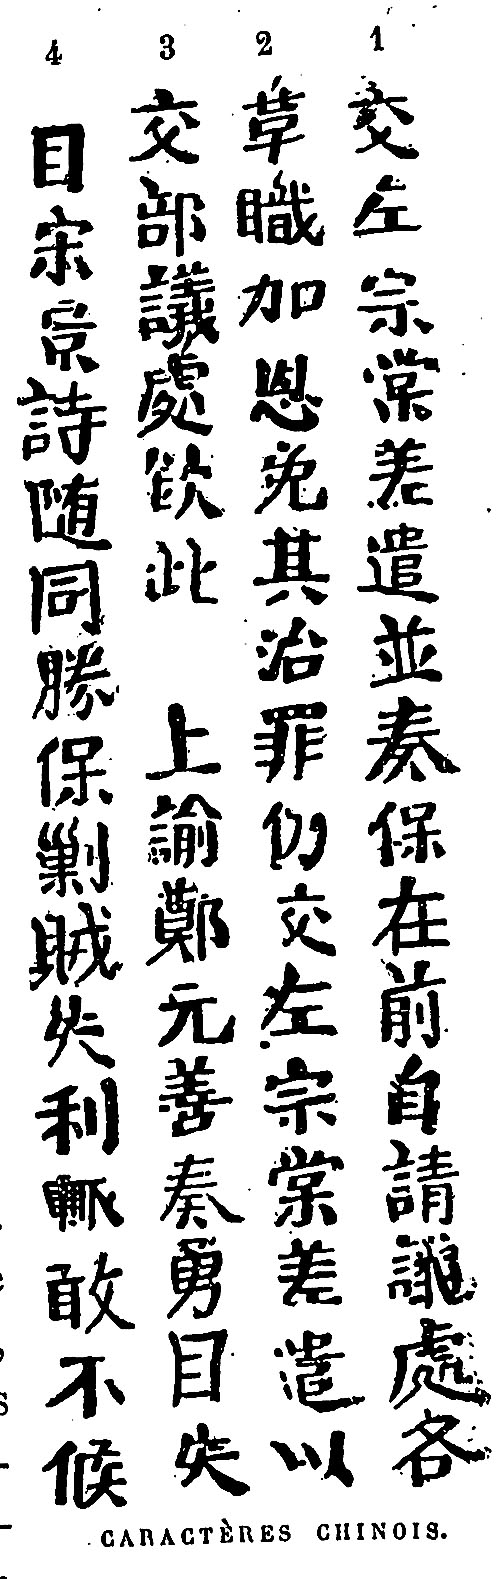 4 3 2 1
交左宗棠差遣並奏保在前自請議處各
革職加恩免其治罪仍交左宗棠差遣以
交部議處欽此 上諭鄭元善奏勇目失
目宋景詩随同勝保剿賊失利輒敢不候
CARACTÈRES CHINOIS.